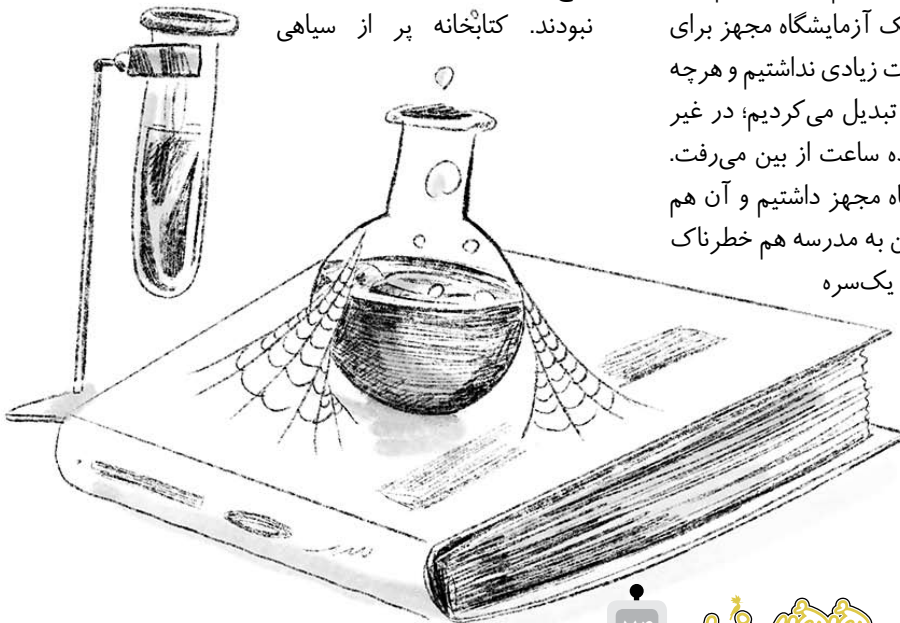 ک آزمایشگاه مجهز برای
ت زیادی نداشتیم و هرچه
تبدیل می‌کردیم؛ در غیر
ده ساعت از بین می‌رفت.
اه مجهز داشتیم و آن هم
ن به مدرسه هم خطرناک
یک‌سره
نبودند. کتابخانه پر از سیاهی